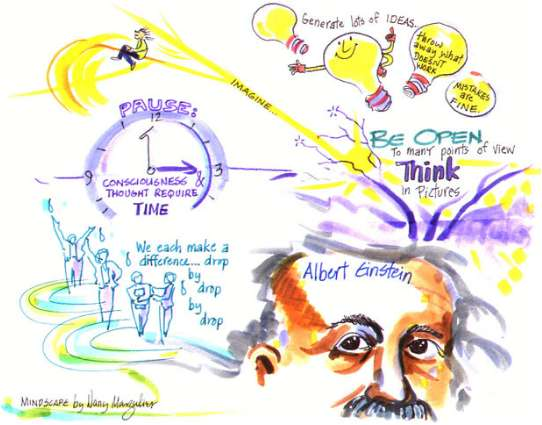 Generate lots of IDEAS...
throw
away what
DOESN'T
WORK
MISTAKES
are
FINE.
IMAGINE...
PAUSE:
12
3
9
CONSCIOUSNESS &
THOUGHT REQUIRE
TIME
BE OPEN.
To many points of view
Think
in Pictures
We each make a
difference... drop
by
drop
by
drop
Albert Einstein
MINDSCAPE by Nancy Margulies